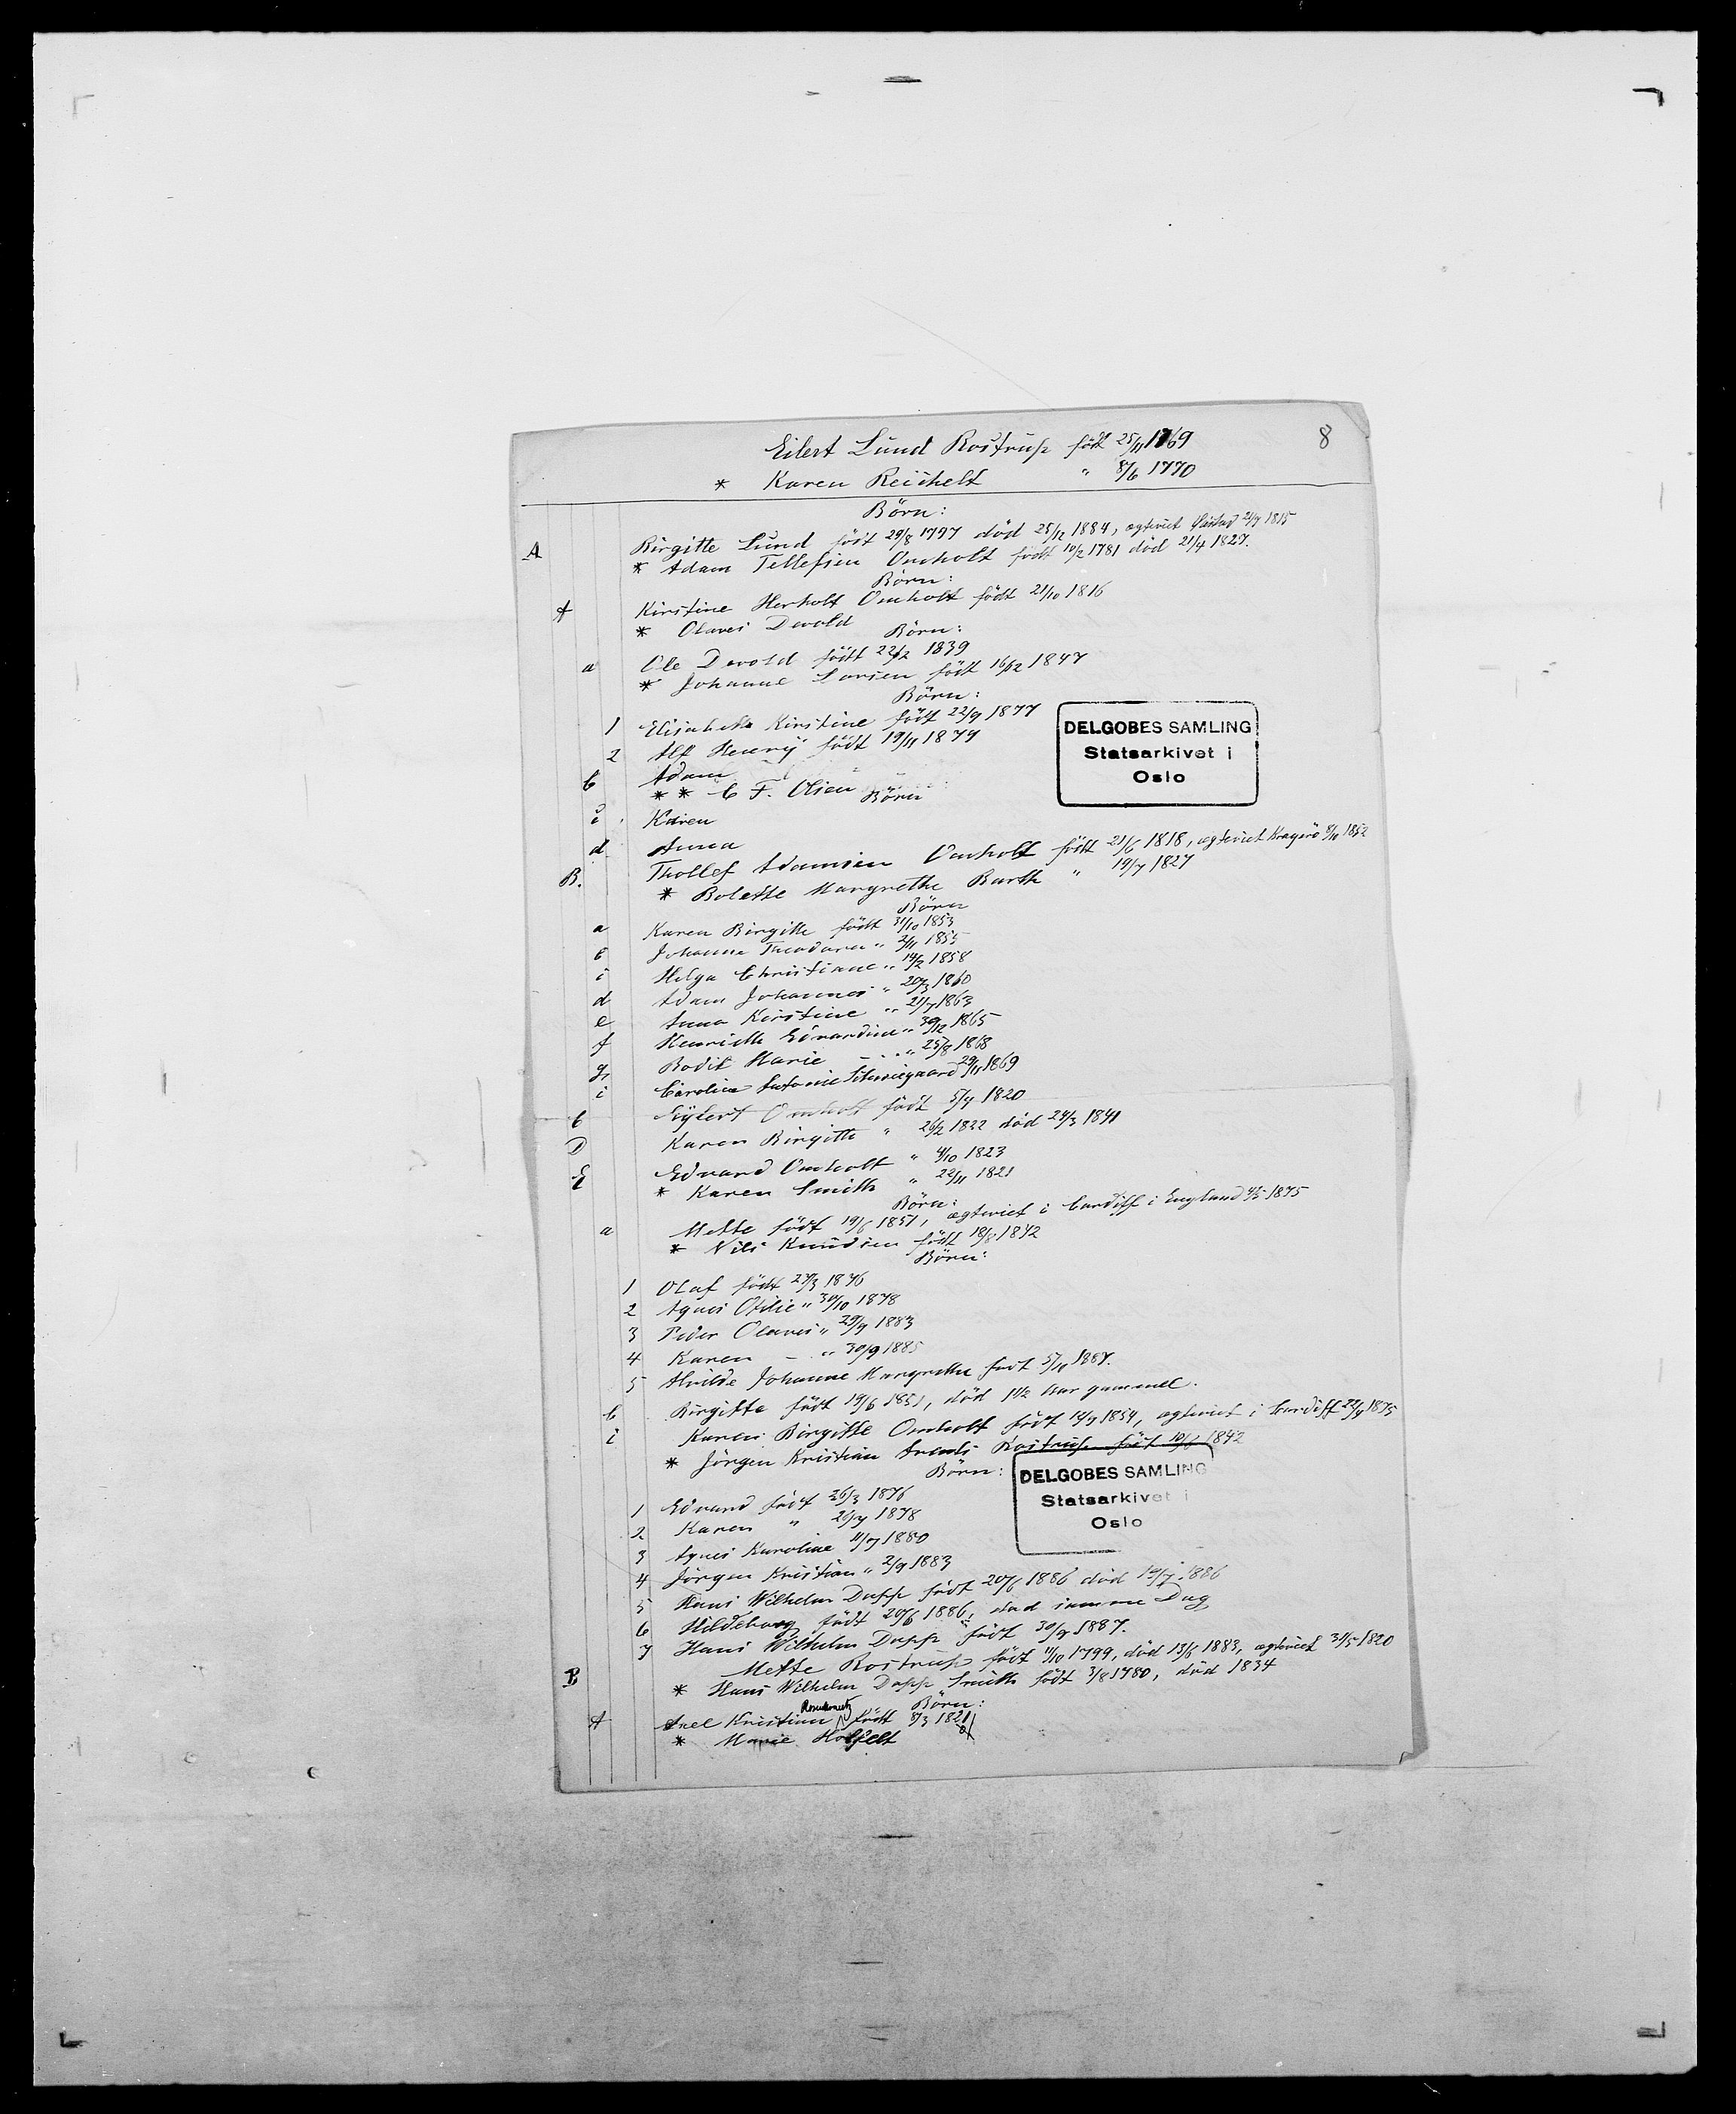 8
Eilert Lund Rostrup födt 25/11 1769
* Karen Reichelt " 8/6 1770
Börn:
A Birgitte Lund födt 29/8 1797 död 25/12 1884, ægteviet 21/7 1815
* Adam Tellefsen Omholt födt 10/2 1781 död 21/4 1827.
Börn:
A Kirstine Herholt Omholt födt 21/10 1816
* Olaves Devold
Börn:
a Ole Devold födt 22/12 1839
* Johanne Larsen födt 16/12 1847
Börn:
1 Elisabeth Kirstine födt 22/9 1877
2 Alf Henrÿ födt 19/11 1879
b Adam
** C F. Olsen
Börn
c Karen
d Anna
B. Thollef Adamsen Omholt födt 21/6 1818, ægteviet Kragerö 8/10 1852
* Bolette Margrethe Barth " 19/7 1827
Börn
a Karen Birgitte födt 31/10 1853
b Johanne Theodora " 2/11 1855
c Helga Christiane " 14/2 1858
d Adam Johannes " 20/3 1860
e Anna Kirstine " 21/7 1863
f Henriette Edvardine " 30/12 1865
g Bodil Marie " 25/8 1868
i Caroline Antonie 29/11 1869
C Eÿlert Omholt födt 5/4 1820
D Karen Birgitte " 26/2 1822 död 24/3 1841
E Edvard Omholt " 4/10 1823
* Karen Smith " 22/11 1821
Börn:
a Mette födt 19/6 1851, ægteviet i Cardiff i England 4/5 1875
* Nils Knudsen födt 18/8 1842
Börn:
1 Olaf födt 27/3 1876
2 Agnes Otilie " 30/10 1878
3 Peder Olaves " 29/4 1883
4 Karen " 30/9 1885
5 Alvilde Johanne Margrethe født 5/11 1887.
b Birgitte födt 19/6 1851, död 1 1/2 Aar gammel.
c Karen Birgitte Omholt födt 14/4 1854, ægteviet i Cardiff 22/4 1875
* Jörgen Kristian Arents Rostrup födt 10/6 1842
Börn:
1 Edvard födt 26/3 1876
2 Karen " 26/4 1878
3 Agnes Karoline 11/7 1880
4 Jörgen Kristian " 2/9 1883
5 Hans Wilhelm Dopp födt 20/6 1886 död 19/7 1886
6 Hildeborg födt 20/6 1886, död samme Dag
7 Hans Wilhelm Dopp födt 30/9 1887.
B Mette Rostrup födt 11/10 1799, död 13/6 1883, ægteviet 31/5 1820
* Hans Wilhelm Dopp Smith födt 3/8 1780, död 1834
Börn:
A Axel Kristian Rosenkrantz födt 8/3 1821
* Marie Hoffelt
DELGOBES SAMLING
Statsarkivet i
Oslo
DELGOBES SAMLING
Statsarkivet i
Oslo